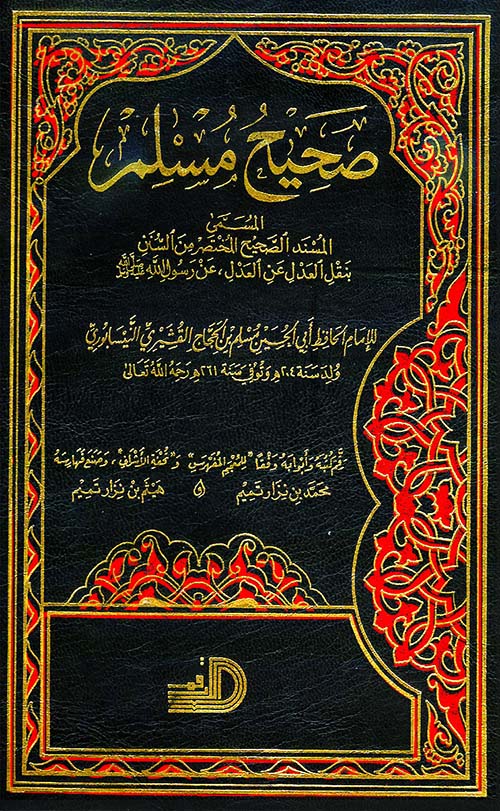 صَحِيحُ مُسْلِم
المُسَمَّىٰ
المُسْنَد الصَّحِيح المُخْتَصَر مِنَ السُّنَن
بِنَقْلِ العَدْلِ عَنِ العَدْلِ، عَنْ رَسُولِ اللَّهِ ﷺ
للإمَام الحَافِظ أَبي الحُسَيْن مُسْلِم بن الحَجَّاج القُشَيْرِيّ النَّيْسَابُورِيّ
وُلِدَ سَنَة ٢٠٤هـ وَتُوُفِّيَ سَنَة ٢٦١هـ رَحِمَهُ اللَّهُ تَعَالَىٰ
رَقَّمَ كُتُبَهُ وَأَبْوَابَهُ وَفْقًا "للمُعْجَم المُفَهْرَس" وَ"تُحْفَة الأَشْرَاف"، وَصَنَعَ فَهَارِسَهُ
محمّد بن نِزار تَميم و هَيثم بن نِزار تَميم